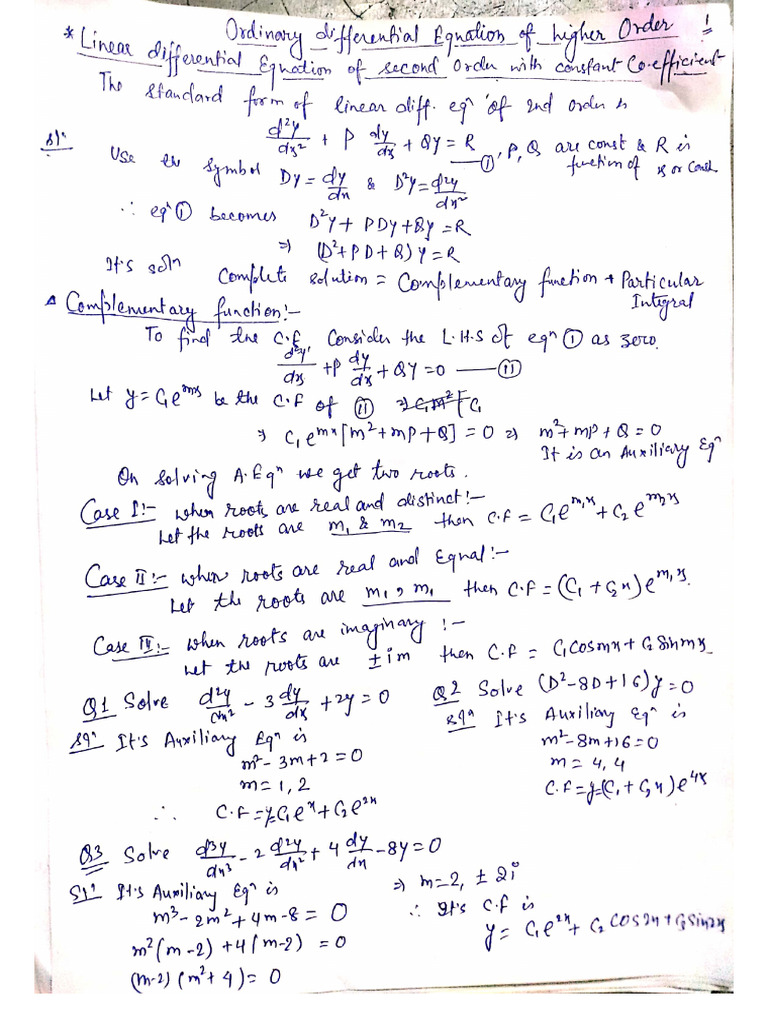 Ordinary differential Equation of higher Order !
* Linear differential Equation of second order with constant Co-efficient
The standard form of linear diff. eqⁿ of 2nd order is
d²y/dx² + P dy/dx + Qy = R —①, P, Q are const & R is function of x or Const.
Use the symbol Dy = dy/dx & D²y = d²y/dx²
∴ eqⁿ ① becomes D²y + PDy + Qy = R
⇒ (D² + PD + Q) y = R
It's solⁿ Complete solution = Complementary function + Particular Integral
Complementary function:-
To find the C.F, Consider the L.H.S of eqⁿ ① as zero.
d²y/dx + P dy/dx + Qy = 0 —⑪
Let y = C₁e^mx be the C.F of ⑪
⇒ C₁e^mx [m² + mP + Q] = 0 ⇒ m² + mP + Q = 0
It is an Auxiliary Eqⁿ
On solving A.Eqⁿ we get two roots.
Case I:- when roots are real and distinct:-
Let the roots are m₁ & m₂ then C.F = C₁e^m₁x + C₂e^m₂x
Case II:- when roots are real and Equal:-
Let the roots are m₁, m₁ then C.F = (C₁ + C₂x) e^m₁x.
Case IV:- when roots are imaginary :-
Let the roots are ± im then C.F = C₁cosmx + C₂ sinmx
Q1 Solve d²y/dx² - 3 dy/dx + 2y = 0
Solⁿ It's Auxiliary Eqⁿ is
m² - 3m + 2 = 0
m = 1, 2
∴ C.F = y = C₁e^x + C₂e^2x
Q2 Solve (D² - 8D + 16) y = 0
Solⁿ It's Auxiliary Eqⁿ is
m² - 8m + 16 = 0
m = 4, 4
C.F = y = (C₁ + C₂x) e^4x
Q3 Solve d³y/dx³ - 2 d²y/dx² + 4 dy/dx - 8y = 0
Solⁿ It's Auxiliary Eqⁿ is
m³ - 2m² + 4m - 8 = 0
m²(m - 2) + 4(m - 2) = 0
(m-2) (m² + 4) = 0
⇒ m = 2, ± 2i
∴ It's C.F is
y = C₁e^2x + C₂ cos2x + C₃ sin2x